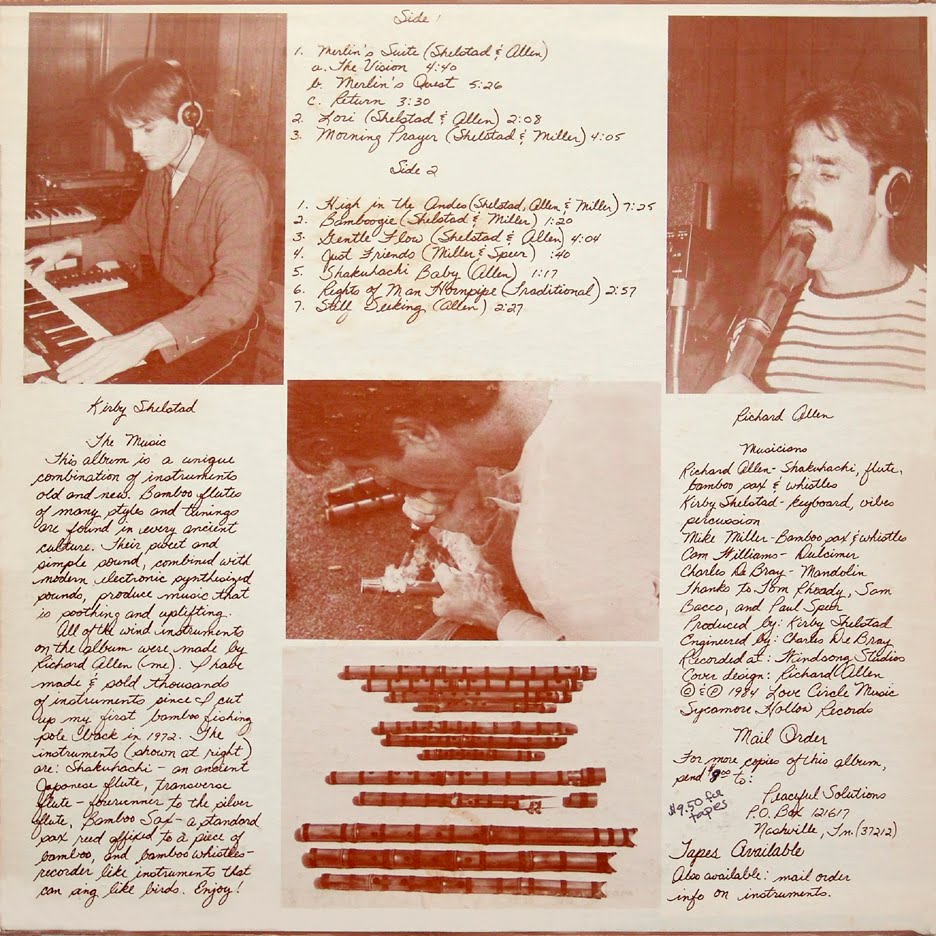 Side 1
1. Merlin's Suite (Shelstad & Allen)
a. The Vision 4:40
b. Merlin's Quest 5:26
c. Return 3:30
2. Lori (Shelstad & Allen) 2:08
3. Morning Prayer (Shelstad & Miller) 4:05
Side 2
1. High in the Andes (Shelstad, Allen & Miller) 7:25
2. Bamboogie (Shelstad & Miller) 1:20
3. Gentle Flow (Shelstad & Allen) 4:04
4. Just Friends (Miller & Speer) :40
5. Shakuhachi Baby (Allen) 1:17
6. Rights of Man Hornpipe (Traditional) 2:57
7. Still Seeking (Allen) 2:27
Kirby Shelstad
The Music
This album is a unique
combination of instruments
old and new. Bamboo flutes
of many styles and tunings
are found in every ancient
culture. Their sweet and
simple sound, combined with
modern electronic synthesized
sounds, produce music that
is soothing and uplifting.
All of the wind instruments
on the album were made by
Richard Allen (me). I have
made & sold thousands
of instruments since I cut
up my first bamboo fishing
pole back in 1972. The
instruments (shown at right)
are: Shakuhachi - an ancient
Japanese flute, transverse
flute - forerunner to the silver
flute, Bamboo Sax - a standard
sax reed affixed to a piece of
bamboo, and bamboo whistles -
recorder like instruments that
can sing like birds. Enjoy!
Richard Allen
Musicians
Richard Allen - Shakuhachi, flute,
bamboo sax & whistles
Kirby Shelstad - keyboard, vibes
percussion
Mike Miller - Bamboo sax & whistles
Cam Williams - Dulcimer
Charles De Bray - Mandolin
Thanks to: Tom Rhoady, Sam
Bacco, and Paul Speer
Produced by: Kirby Shelstad
Engineered by: Charles De Bray
Recorded at: Windsong Studios
Cover design: Richard Allen
© & ℗ 1984 Love Circle Music
Sycamore Hollow Records
Mail Order
For more copies of this album,
send $9.00 to:
Peaceful Solutions
P.O. Box 121617
Nashville, Tn. (37212)
$9.50 for
tapes
Tapes Available
Also available: mail order
info on instruments.